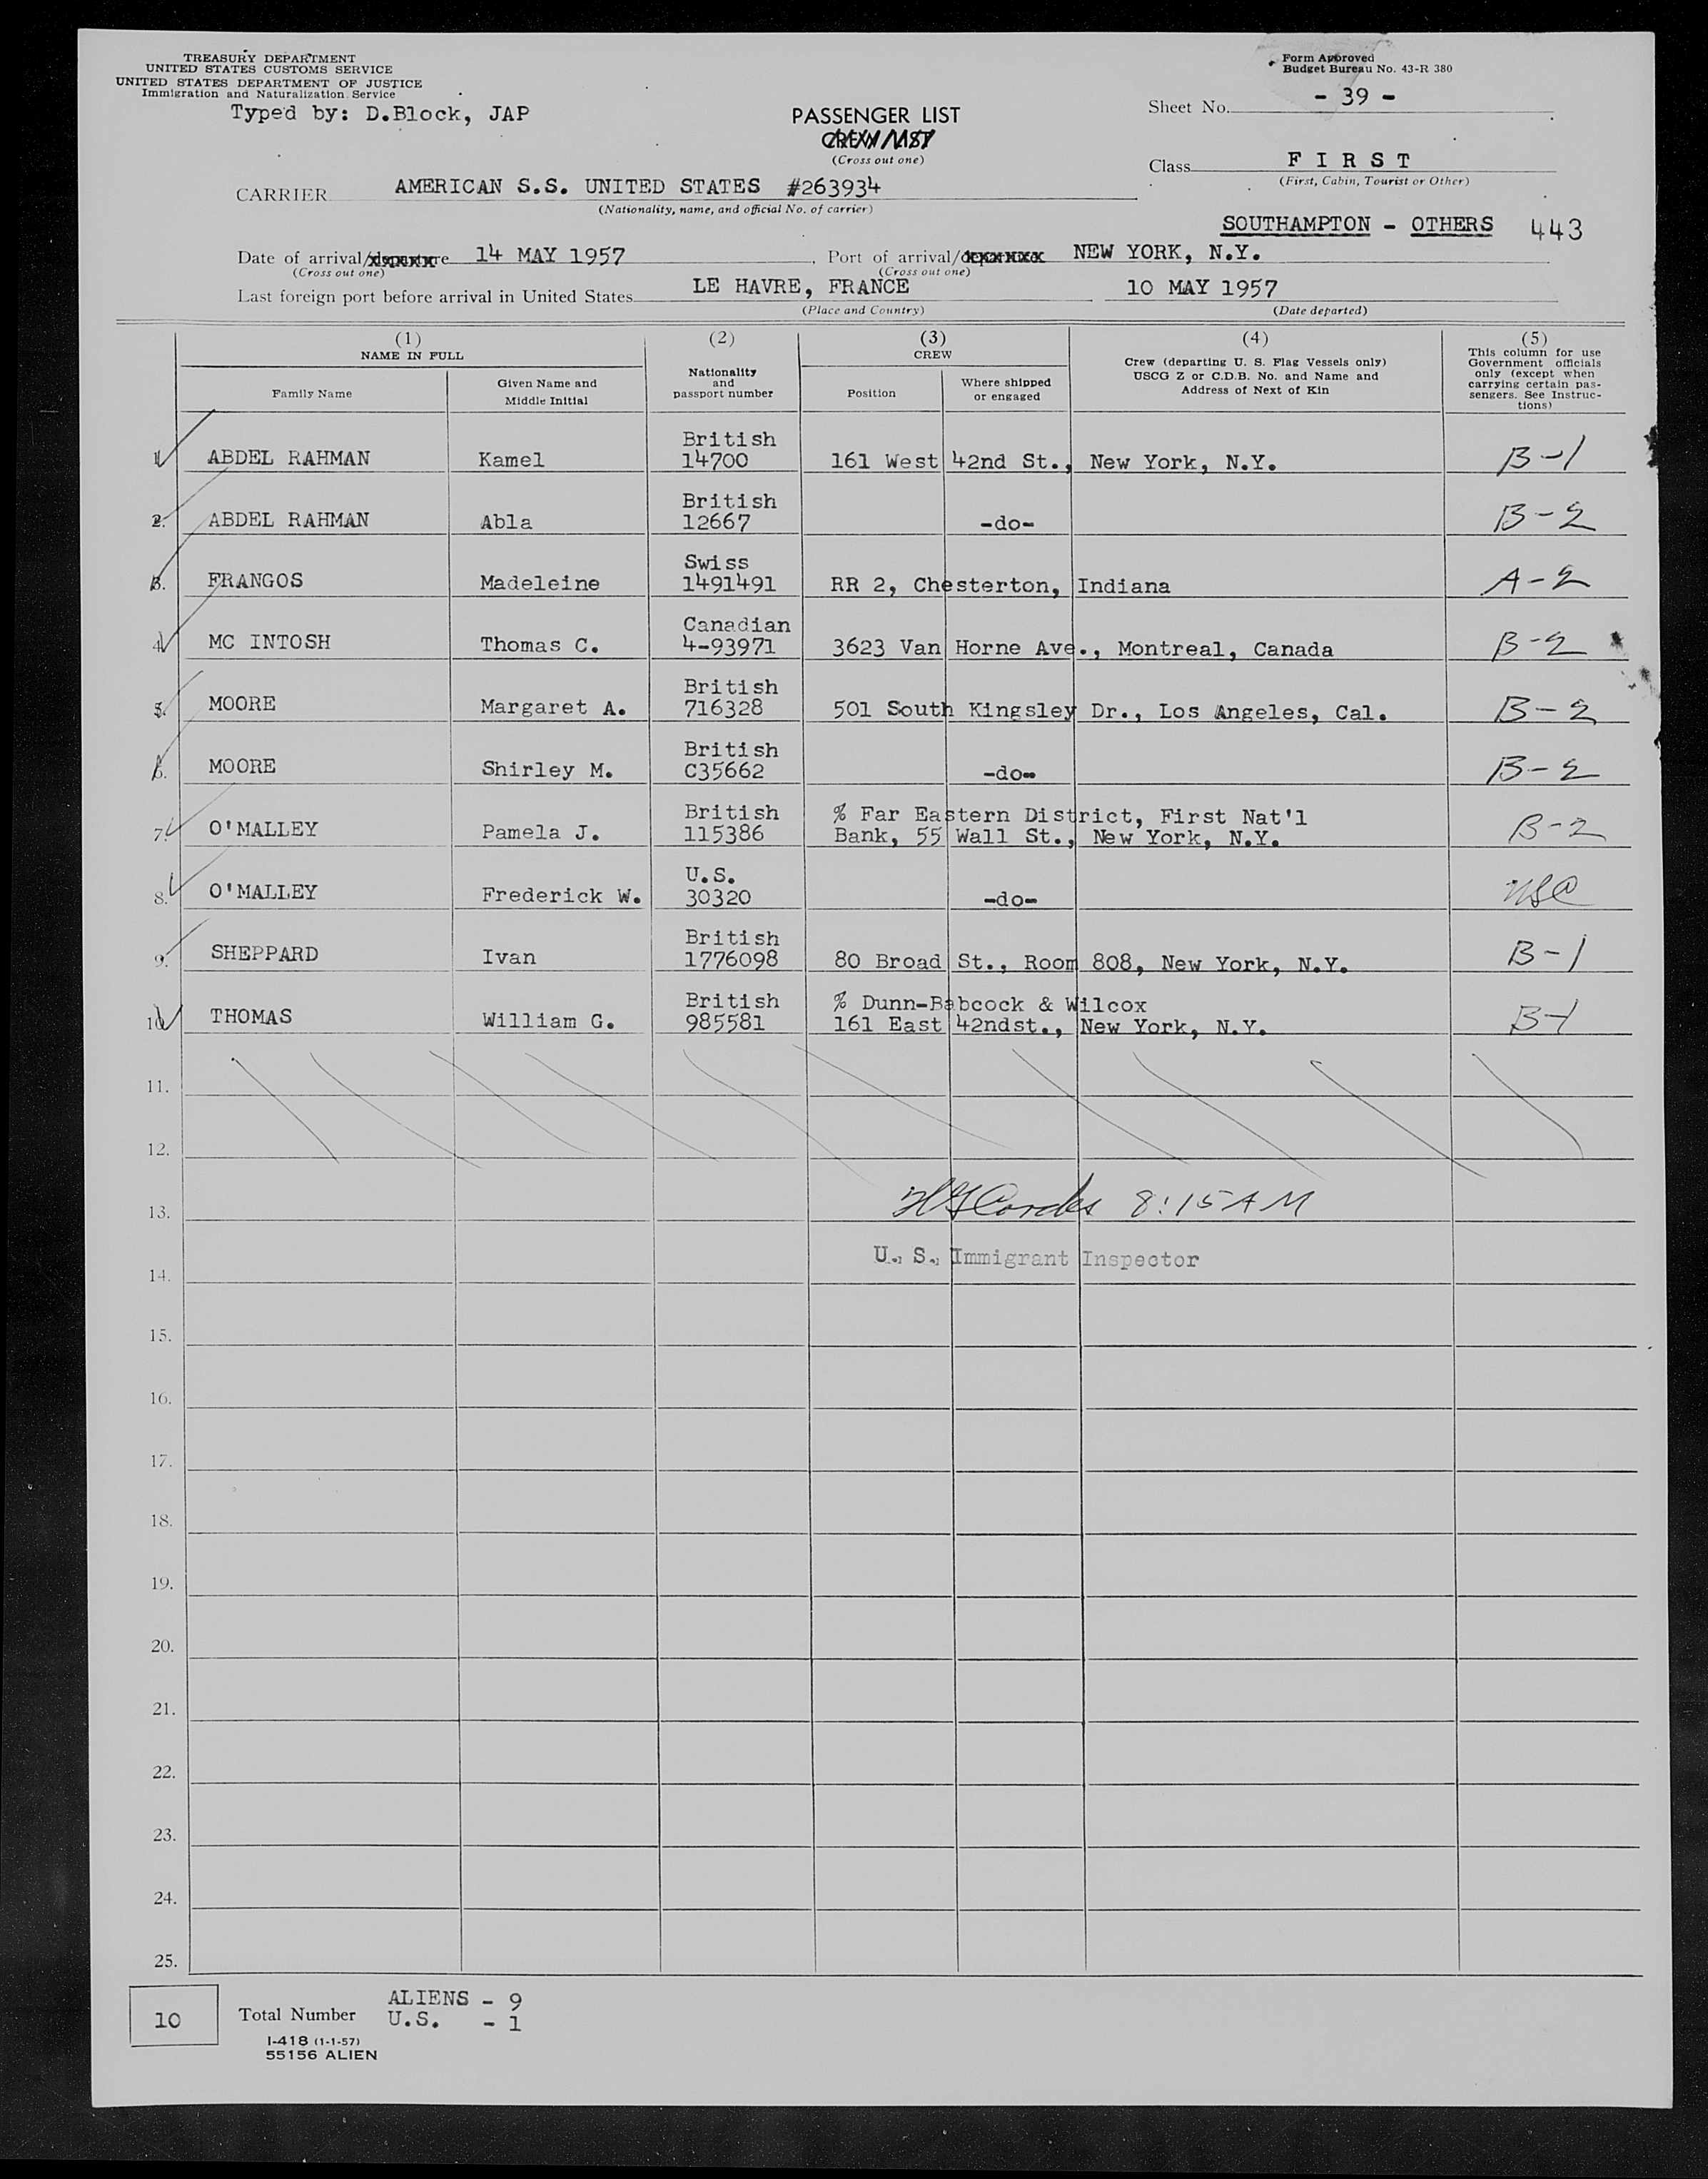 TREASURY DEPARTMENT
UNITED STATES CUSTOMS SERVICE
UNITED STATES DEPARTMENT OF JUSTICE
Immigration and Naturalization Service
Typed by: D.Block, JAP
Form Approved
Budget Bureau No. 43-R 380
PASSENGER LIST
CREW LIST
(Cross out one)
Sheet No. - 39 -
Class F I R S T
(First, Cabin, Tourist or Other)
CARRIER AMERICAN S.S. UNITED STATES #263934
(Nationality, name, and official No. of carrier)
SOUTHAMPTON - OTHERS 443
Date of arrival/departure 14 MAY 1957, Port of arrival/departure NEW YORK, N.Y.
(Cross out one) (Cross out one)
Last foreign port before arrival in United States LE HAVRE, FRANCE 10 MAY 1957
(Place and Country) (Date departed)
(1) (2) (3) (4) (5)
NAME IN FULL
Family Name
Given Name and
Middle Initial
Nationality
and
passport number
CREW
Position
Where shipped
or engaged
Crew (departing U. S. Flag Vessels only)
USCG Z or C.D.B. No. and Name and
Address of Next of Kin
This column for use
Government officials
only (except when
carrying certain pas-
sengers. See Instruc-
tions)
British
1. ABDEL RAHMAN Kamel 14700 161 West 42nd St., New York, N.Y. B-1
British
2. ABDEL RAHMAN Abla 12667 -do- B-2
Swiss
3. FRANGOS Madeleine 1491491 RR 2, Chesterton, Indiana A-2
Canadian
4. MC INTOSH Thomas C. 4-93971 3623 Van Horne Ave., Montreal, Canada B-2
British
5. MOORE Margaret A. 716328 501 South Kingsley Dr., Los Angeles, Cal. B-2
British
6. MOORE Shirley M. C35662 -do- B-2
British % Far Eastern District, First Nat'l
7. O'MALLEY Pamela J. 115386 Bank, 55 Wall St., New York, N.Y. B-2
U.S.
8. O'MALLEY Frederick W. 30320 -do- USC
British
9. SHEPPARD Ivan 1776098 80 Broad St., Room 808, New York, N.Y. B-1
British % Dunn-Babcock & Wilcox
10. THOMAS William G. 985581 161 East 42ndst., New York, N.Y. B-1
11.
12.
13. Cordes 8:15 AM
U. S. Immigrant Inspector
14.
15.
16.
17.
18.
19.
20.
21.
22.
23.
24.
25.
10 Total Number
ALIENS - 9
U.S. - 1
I-418 (1-1-57)
55156 ALIEN